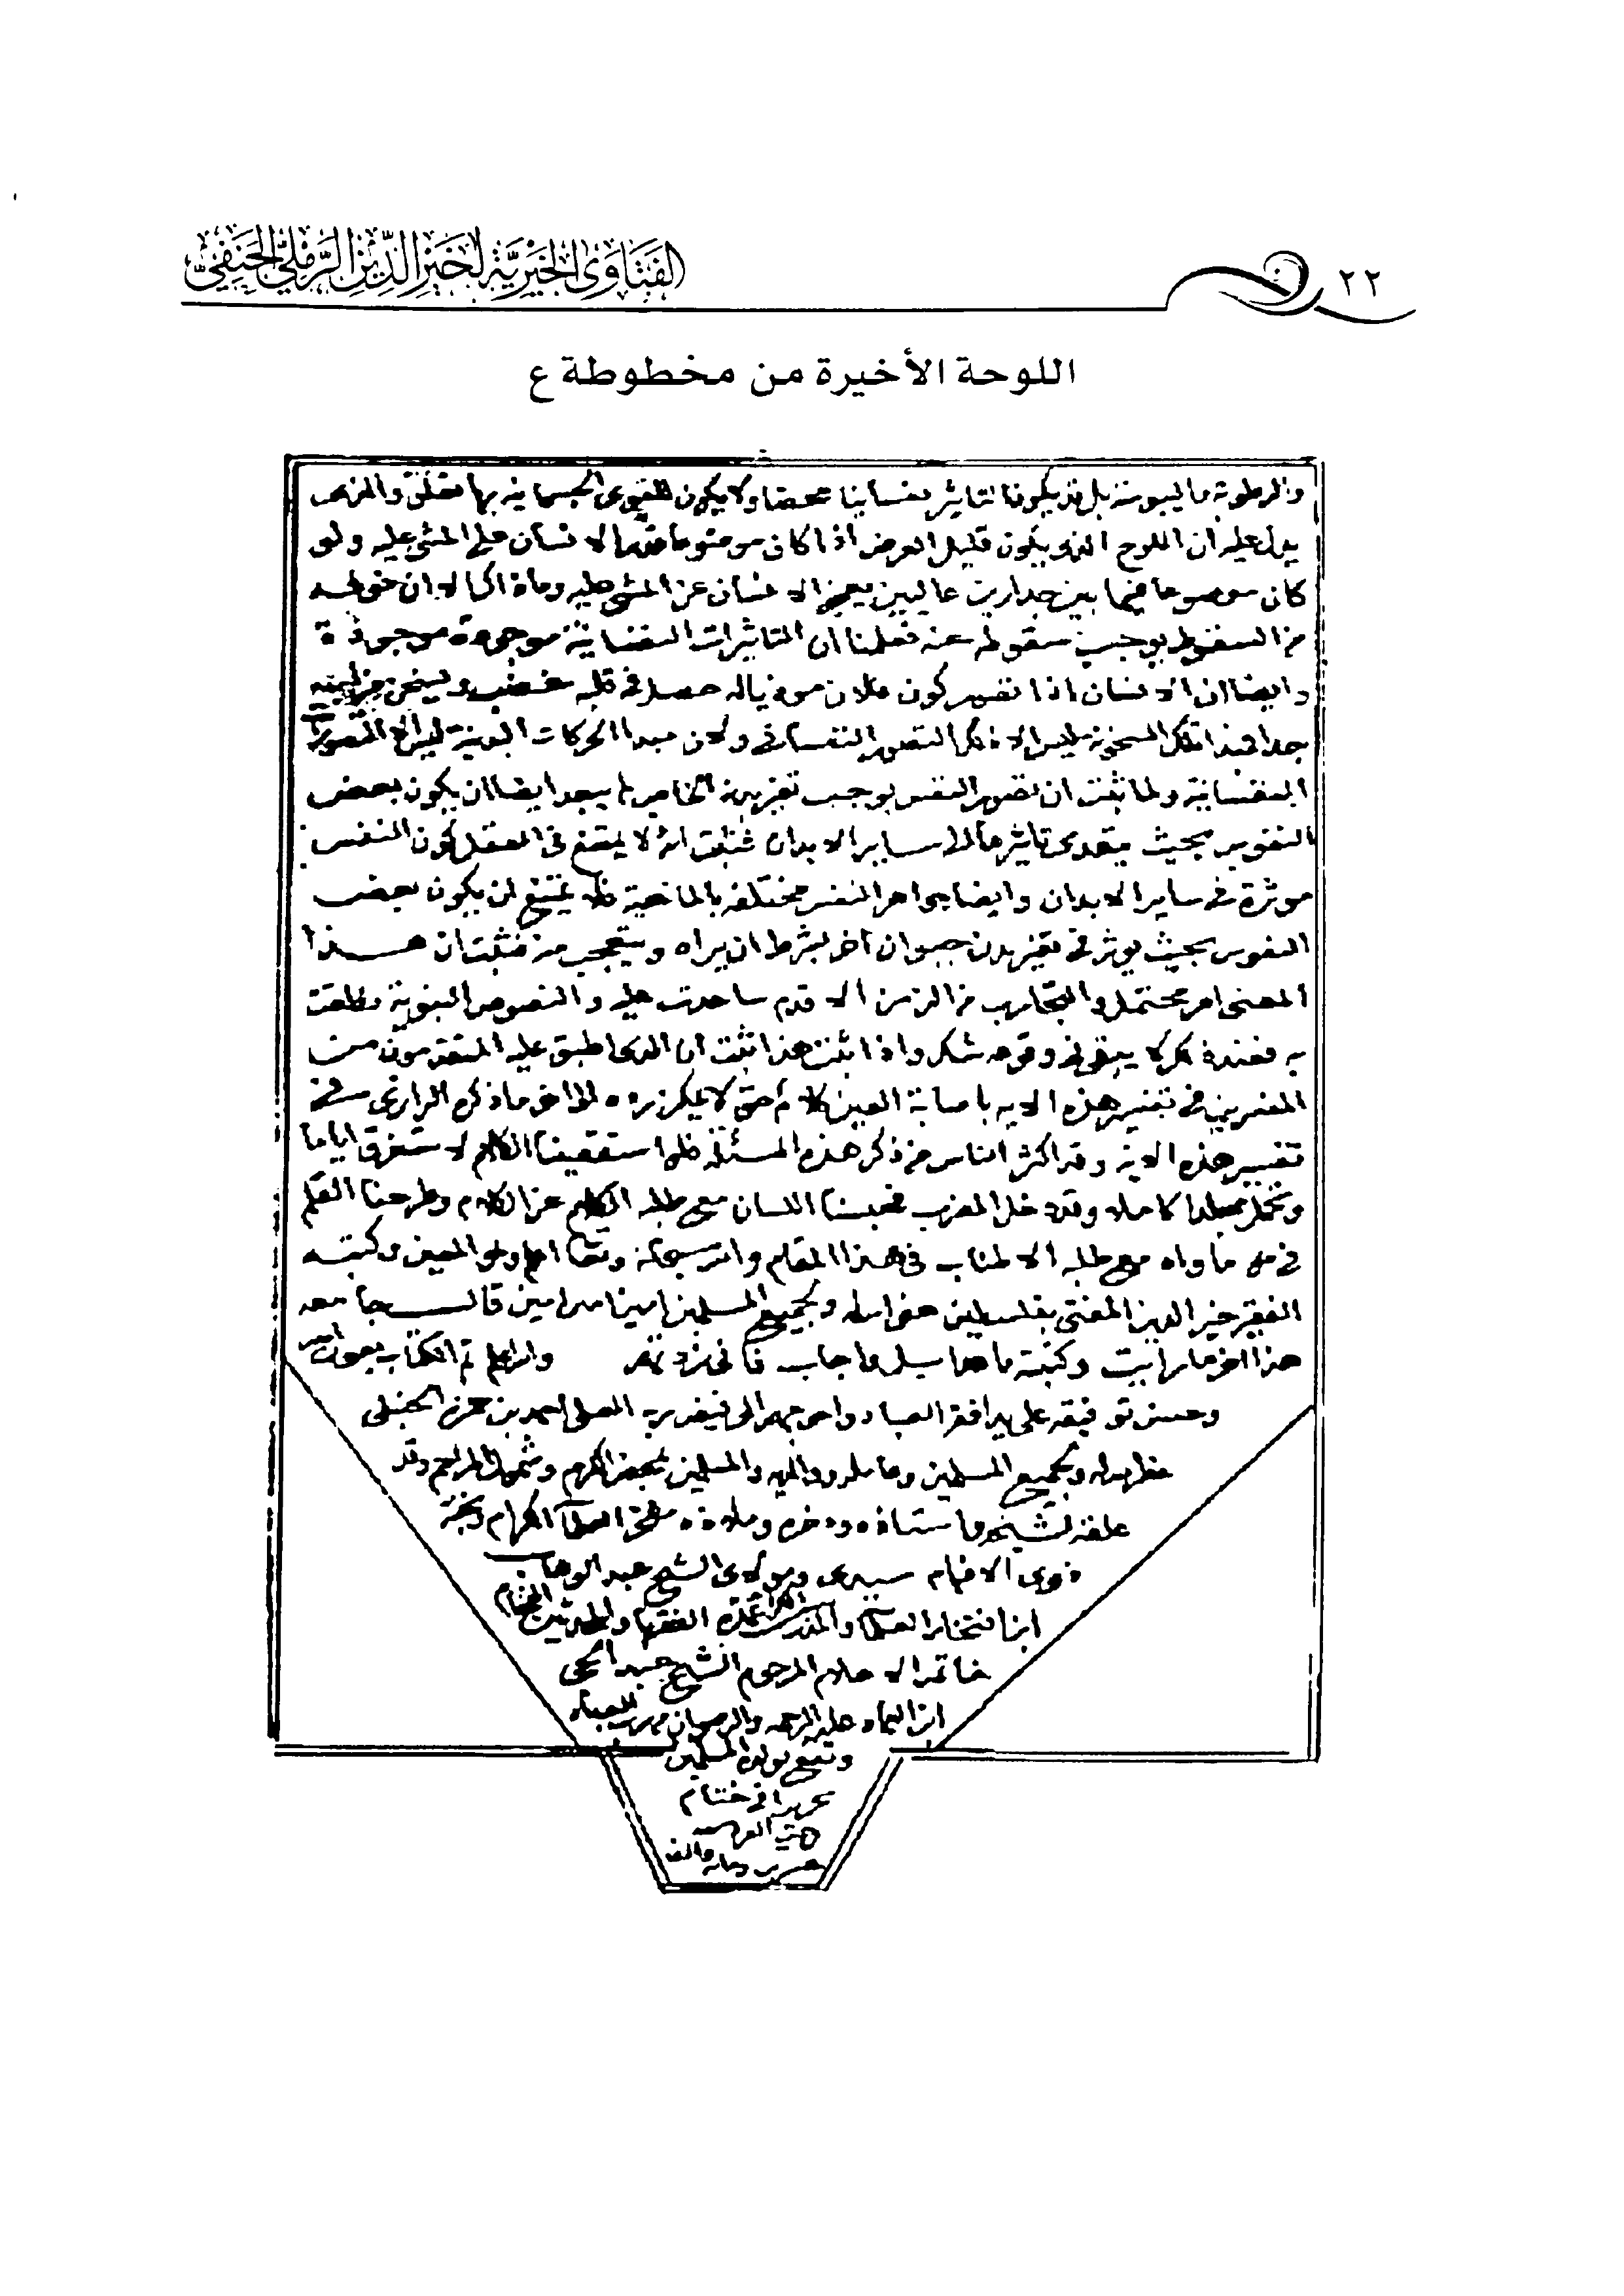 ٢٢
الفتاوى الخيرية لخير الدين الرملي الحنفي
اللوحة الأخيرة من مخطوطة ع
والرطوبة واليبوسة بل قد يكون التاثير نفسانيا محضا ولا يكون للقوى الجسمانية بها تعلق والذي
يدل عليه ان اللوح الذي يكون قليل العرض اذا كان موضوعا الانسان على المشي عليه ولو
كان موضوعا فيما بين جدارين عاليين يعجز الانسان عن المشي عليه وما ذاك الا لان خوفه
من السقوط يوجب سقوطه عنه فعلمنا ان التاثيرات النفسانية موجودة
وايضا ان الانسان اذا تصور كون فلان موذيا له حصل في قلبه غضب ويسخن مزاجه
جدا فمبدا تلك السخونة ليس الا ذلك التصور النفساني ولان مبدا الحركات البدنية ليس الا التصورات
النفسانية ولما ثبت ان تصور النفس يوجب تغير بدنه الخاص لم يبعد ايضا ان يكون بعض
النفوس بحيث يتعدى تاثيرها الى ساير الابدان فثبت انه لا يمتنع في العقل كون النفس
موثرة في ساير الابدان وايضا جواهر النفس مختلفة بالماهية فلا يمتنع ان يكون بعض
النفوس بحيث يوثر في تغير بدن حيوان اخر بشرط ان يراه ويتعجب منه فثبت ان هذا
المعنى امر محتمل والتجارب من الزمن الاقدم ساعدت عليه والنصوص النبوية نطقت
به فعند ذلك لا يبقى في وقوعه شك واذا ثبت هذا ثبت ان الذي اطبق عليه المتقدمون من
المفسرين في تفسير هذه الاية باصابة العين كلام حق لا يمكن رده الى اخر ما ذكره الرازي في
تفسير هذه الاية وقد اكثر الناس من ذكر هذه المسئلة فلو استقصينا الكلام لاستغرق اياما
كاملا وقد دخل المغرب فحبسنا اللسان مع طلبه الكلام عن الكلام وطرحنا القلم
في ماواه مع طلبه الاطناب في هذا المقام والله سبحانه وتعالى اعلم وهو المعين وكتبه
الفقير خير الدين المفتي بفلسطين عفي الله وجميع المسلمين امين قال جامعه
هذا اخر ما رايت وكتبته والله اعلم تم الكتاب بعون الله
وحسن توفيقه على يد افقر العباد واحوجهم الى فيض ربه العلي الحنبلي
غفر الله له وجميع المسلمين والمسلمين
علقه لشيخه واستاذه وذخره وملاذه مفخر العلماء الكرام
ذوي الافهام سيدي ومولاي الشيخ عبد الوهاب
ابن افتخار العلماء والمدرسين عمدة الفقهاء والمحدثين الفخام
خاتمة الاعلام المرحوم الشيخ عبد الحي
ابن العماد عليه الرحمة والرضوان
المسلمين
في ختام
وماية والف